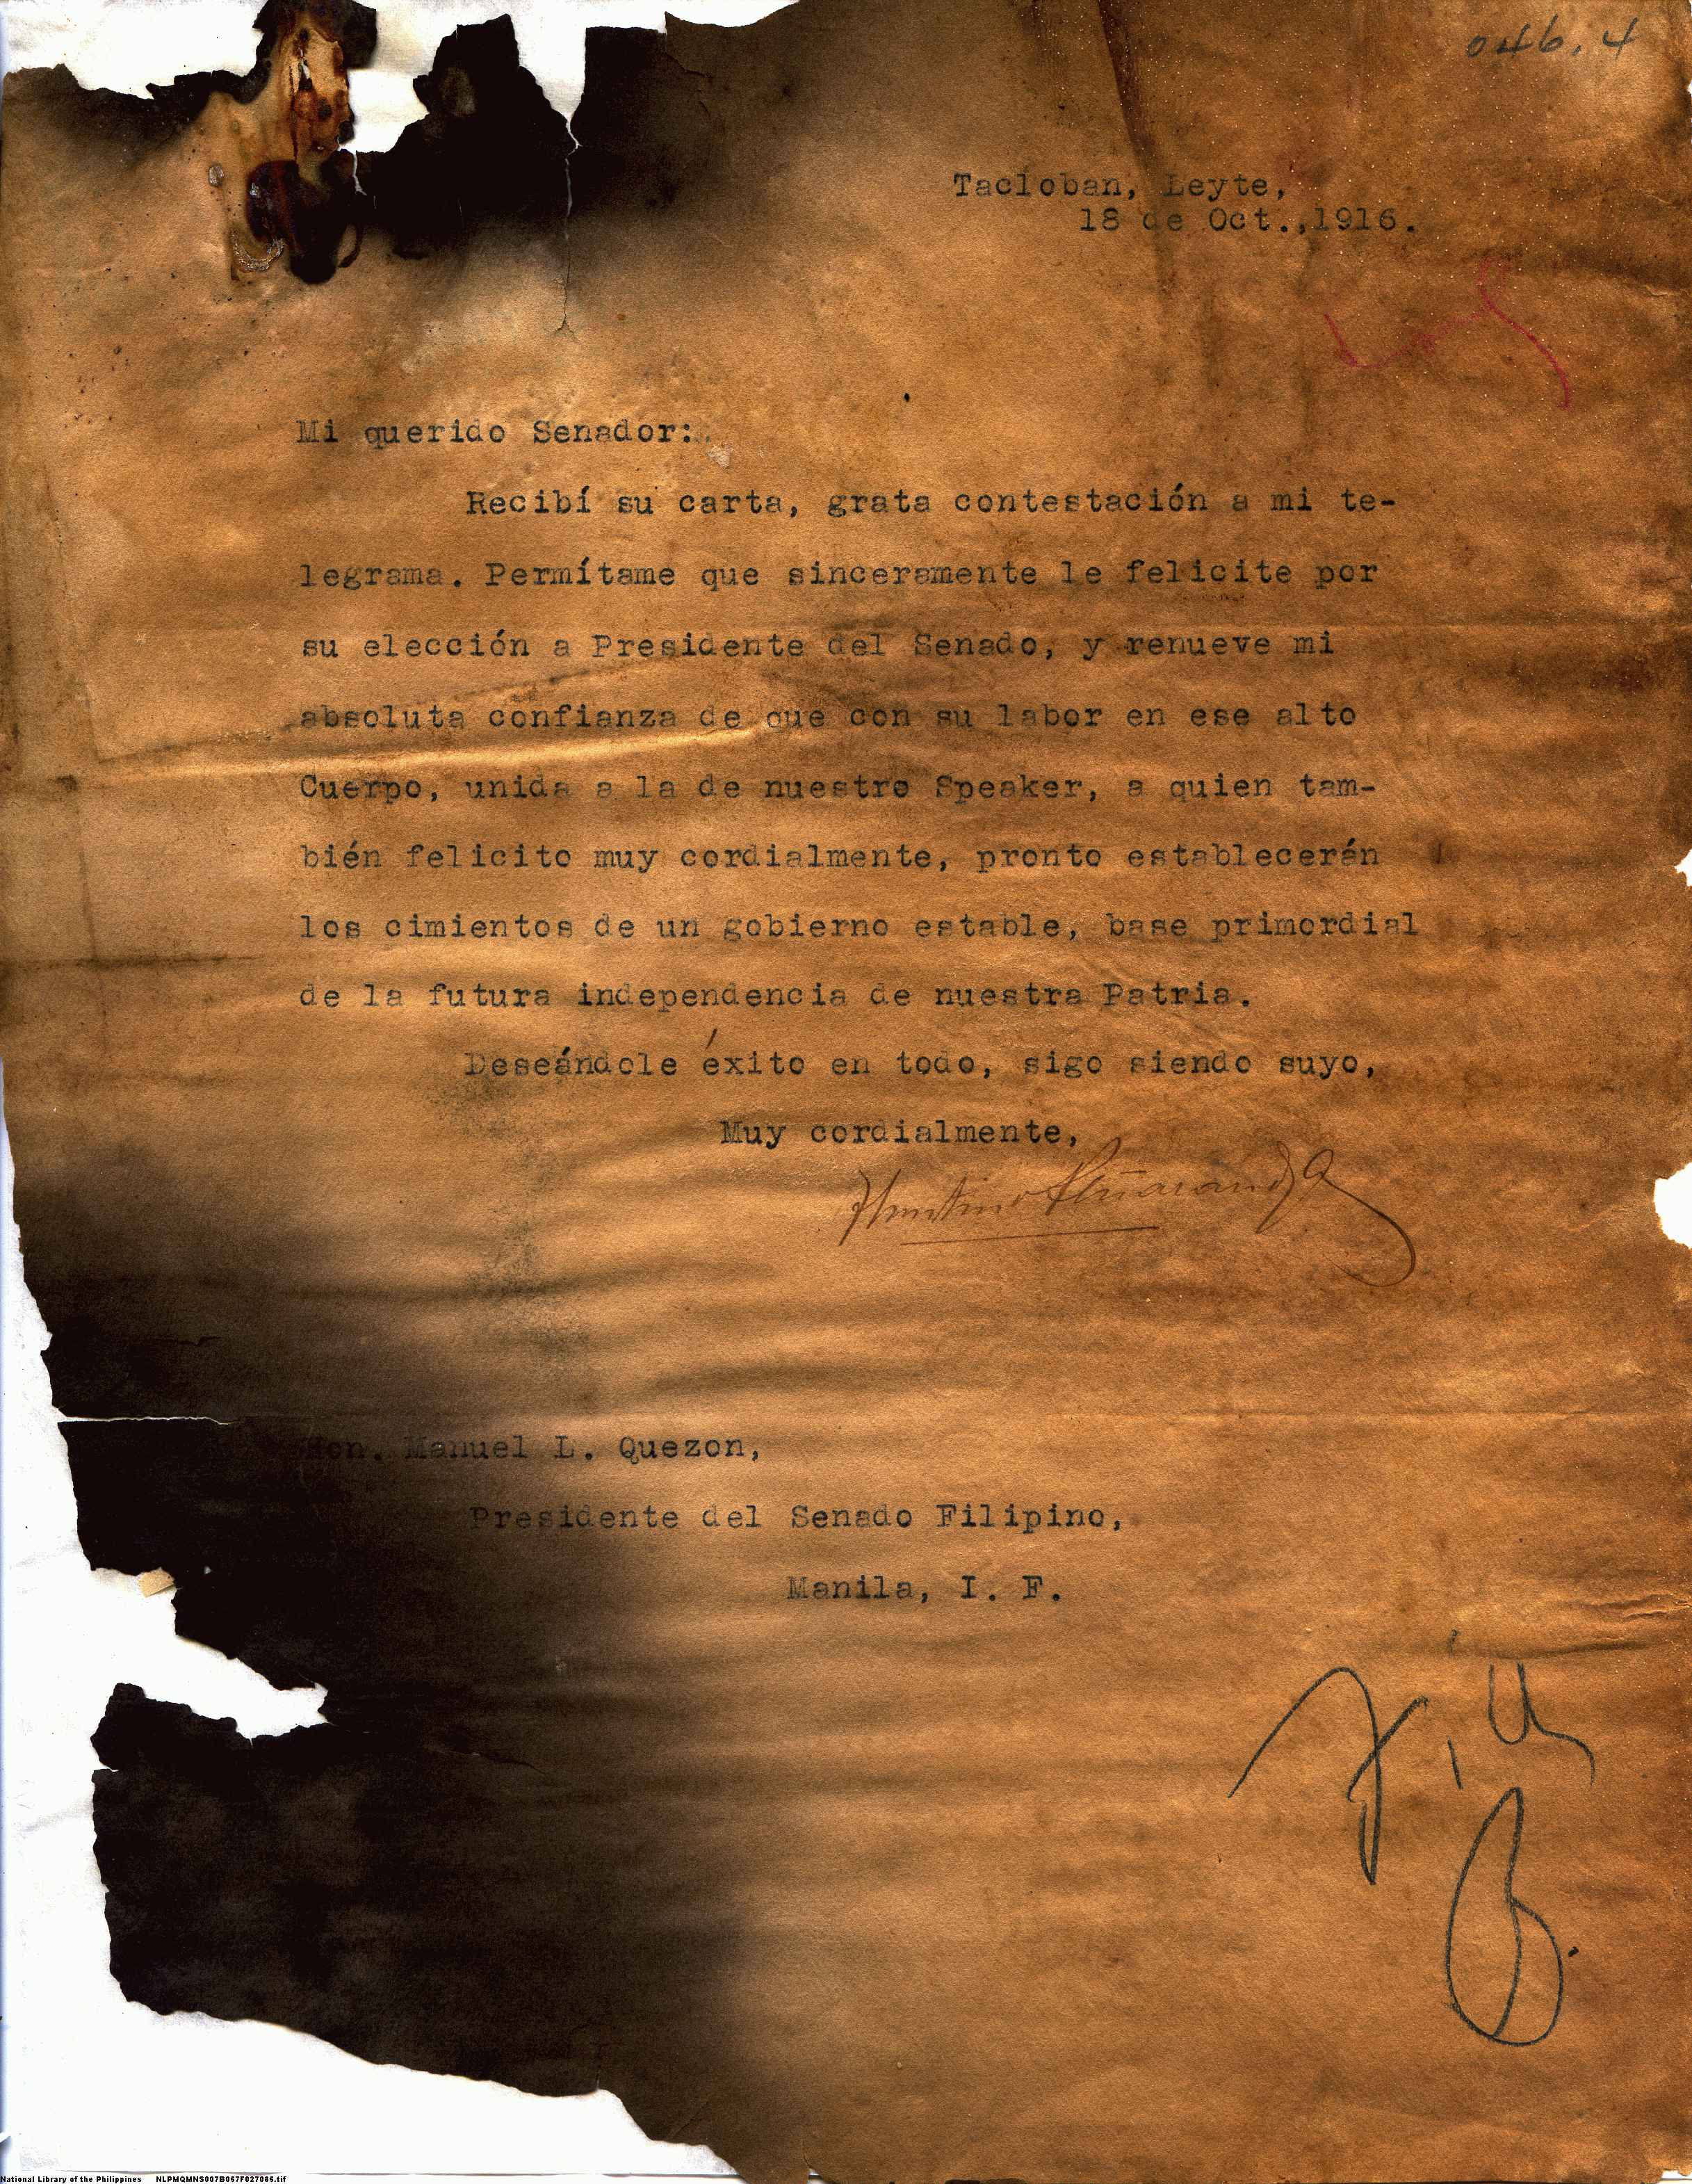 046.4
Tacloban, Leyte,
18 de Oct.,1916.
Mi querido Senador:
Recibí su carta, grata contestación a mi te-
legrama. Permítame que sinceramente le felicite por
su elección a Presidente del Senado, y renueve mi
absoluta confianza de que con su labor en ese alto
Cuerpo, unida a la de nuestro Speaker, a quien tam-
bién felicito muy cordialmente, pronto establecerán
los cimientos de un gobierno estable, base primordial
de la futura independencia de nuestra Patria.
Deseándole éxito en todo, sigo siendo suyo,
Muy cordialmente,
Hon. Manuel L. Quezon,
Presidente del Senado Filipino,
Manila, I. F.
National Library of the Philippines NLPMQMNS007B057F027085.tif